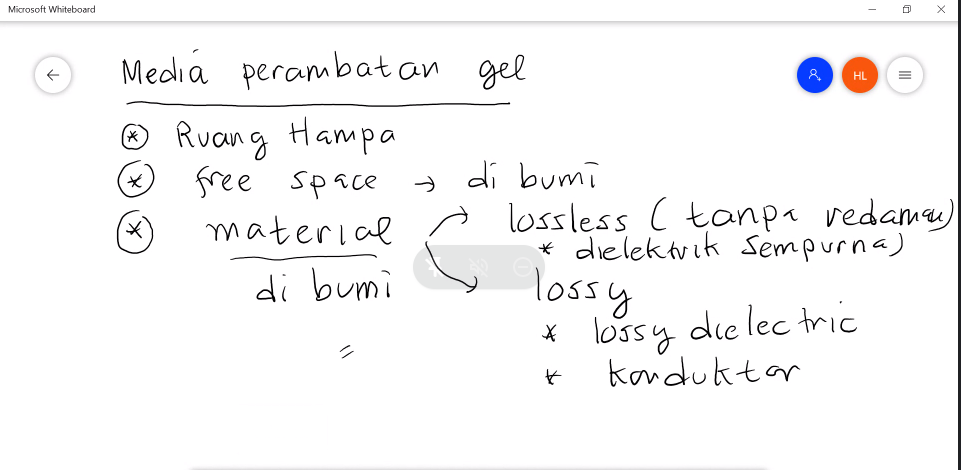 Microsoft Whiteboard
Media perambatan gel
HL
* Ruang Hampa
* free space → di bumi
* material
lossless (tanpa redaman)
* dielektrik sempurna)
di bumi
lossy
* lossy dielectric
=
* konduktor